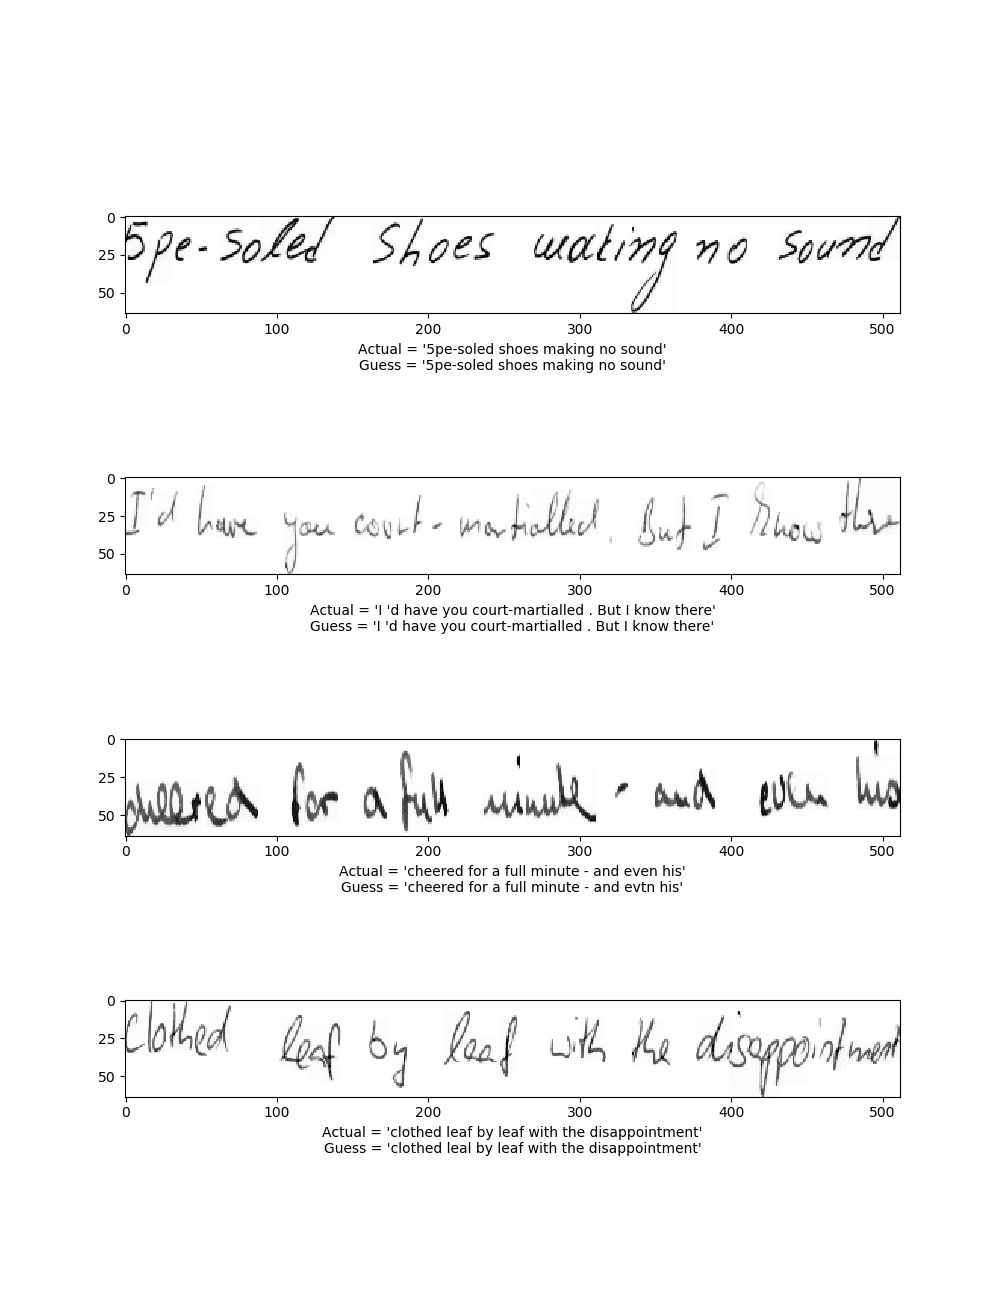 0
25
50
5pe-soled shoes making no sound
0 100 200 300 400 500
Actual = '5pe-soled shoes making no sound'
Guess = '5pe-soled shoes making no sound'
0
25
50
I'd have you court-martialled. But I know there
0 100 200 300 400 500
Actual = 'I 'd have you court-martialled . But I know there'
Guess = 'I 'd have you court-martialled . But I know there'
0
25
50
cheered for a full minute - and even his
0 100 200 300 400 500
Actual = 'cheered for a full minute - and even his'
Guess = 'cheered for a full minute - and evtn his'
0
25
50
clothed leaf by leaf with the disappointment
0 100 200 300 400 500
Actual = 'clothed leaf by leaf with the disappointment'
Guess = 'clothed leal by leaf with the disappointment'